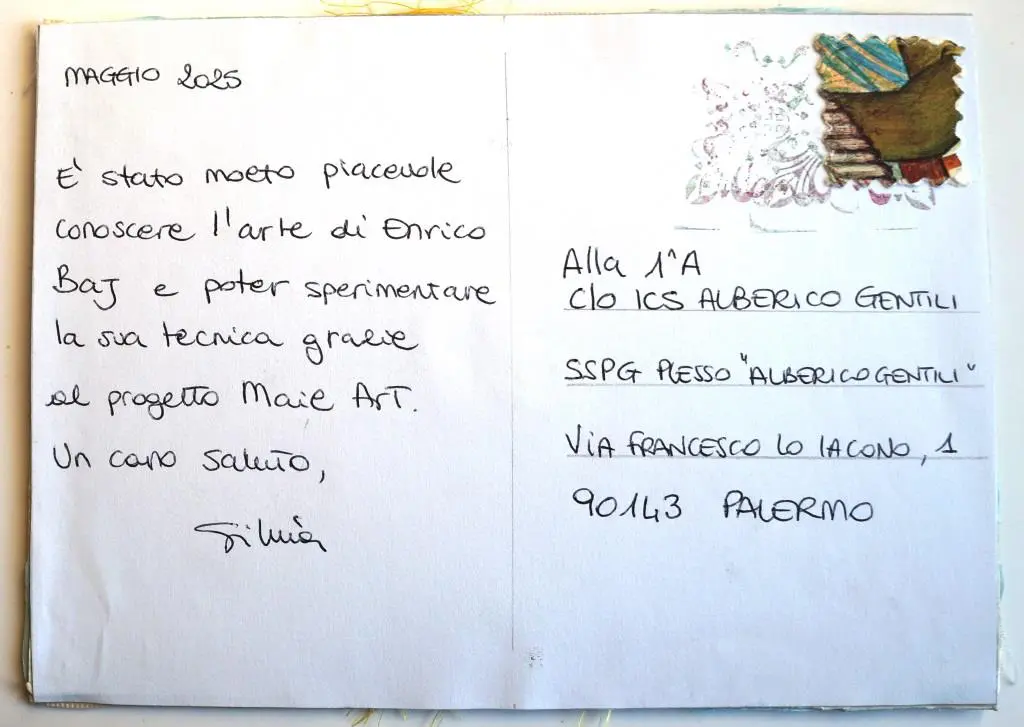 MAGGIO 2025
È stato molto piacevole
conoscere l'arte di Enrico
Baj e poter sperimentare
la sua tecnica grazie
al progetto Mail Art.
Un caro saluto,
Silvia
Alla 1^A
C/o ICS ALBERICO GENTILI
SSPG PLESSO "ALBERICO GENTILI"
VIA FRANCESCO LO IACONO, 1
90143 PALERMO